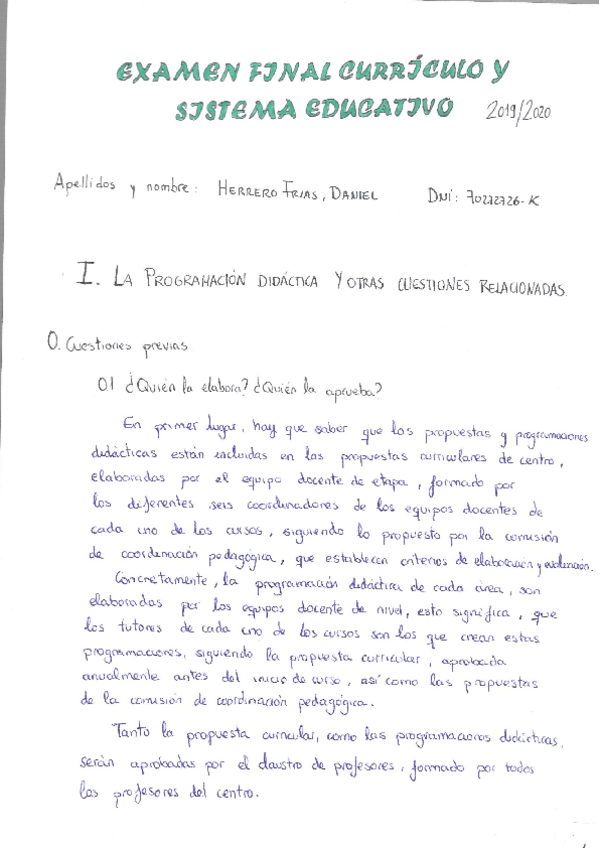 EXAMEN FINAL CURRÍCULO Y
SISTEMA EDUCATIVO 2019/2020
Apellidos y nombre: HERRERO FRIAS, DANIEL DNI: 70272726-K
I. LA PROGRAMACIÓN DIDÁCTICA Y OTRAS CUESTIONES RELACIONADAS.
0. Cuestiones previas
0.1 ¿Quién la elabora? ¿Quién la aprueba?
En primer lugar, hay que saber que las propuestas y programaciones
didácticas están incluidas en las propuestas curriculares de centro,
elaboradas por el equipo docente de etapa, formado por
los diferentes seis coordinadores de los equipos docentes de
cada uno de los cursos, siguiendo lo propuesto por la comisión
de coordinación pedagógica, que establecen criterios de elaboración y evaluación.
Concretamente, la programación didáctica de cada área, son
elaboradas por los equipos docente de nivel, esto significa, que
los tutores de cada uno de los cursos son los que crean estas
programaciones, siguiendo la propuesta curricular, aprobada
anualmente antes del inicio de curso, así como las propuestas
de la comisión de coordinación pedagógica.
Tanto la propuesta curricular, como las programaciones didácticas,
serán aprobadas por el claustro de profesores, formado por todos
los profesores del centro.